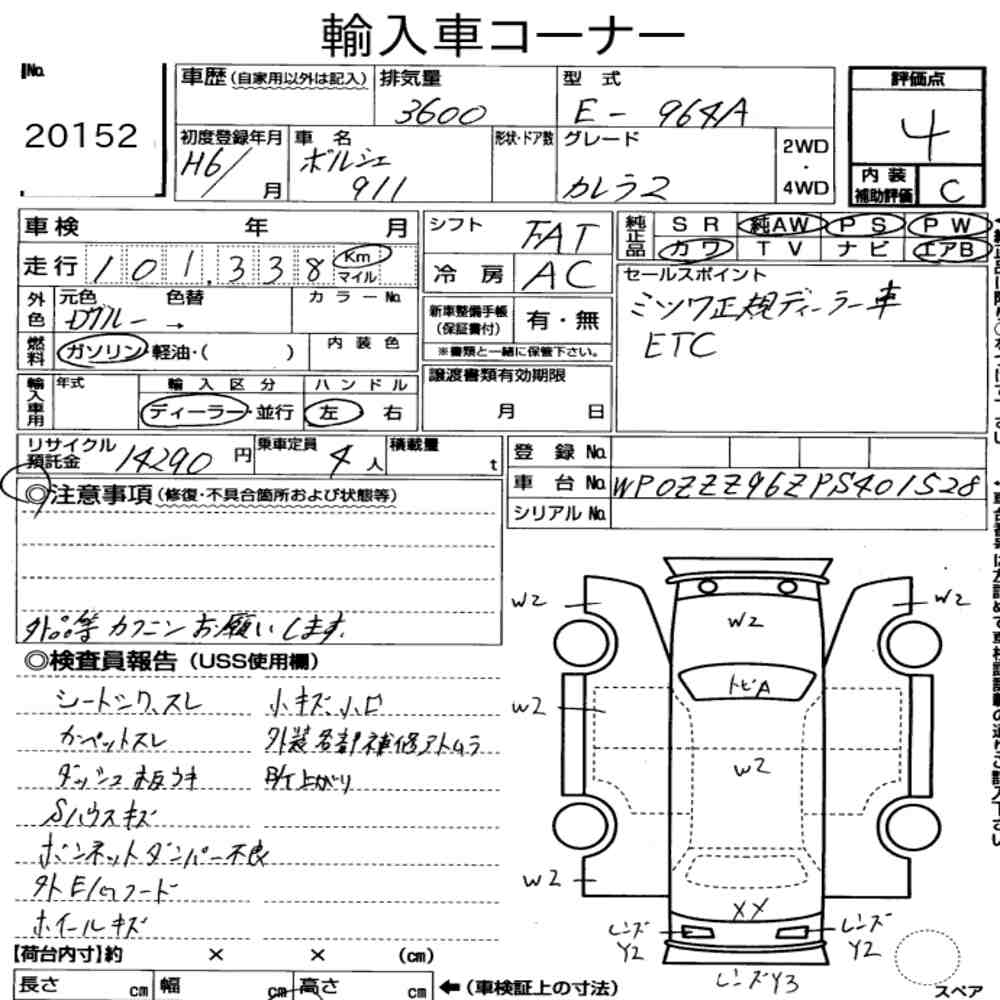 輸入車コーナー
No. 20152
車歴 (自家用以外は記入) 排気量 3600 型式 E-964A 評価点 4
初度登録年月 H6/ 月 車名 ポルシェ 911 形状・ドア数 グレード カレラ2 2WD・4WD 内装補助評価 C
車検 年 月 シフト FAT 純正品 SR 純AW PS PW
走行 101,338 Km マイル 冷房 AC カワ TV ナビ エアB
外色 元色 Dブルー → 色替 カラーNo. 新車整備手帳(保証書付) 有・無 セールスポイント
※書類と一緒に保管下さい。 ミツワ正規ディーラー車
燃料 ガソリン・軽油・( ) 内装色 ETC
輸入車用 年式 輸入区分 ディーラー・並行 ハンドル 左 右 譲渡書類有効期限 月 日
リサイクル預託金 14290円 乗車定員 4人 積載量 t 登録No.
車台No. WP0ZZZ96ZPS401528
シリアルNo.
◎注意事項(修復・不具合箇所および状態等)
外品等 カクニンお願いします.
◎検査員報告(USS使用欄)
シートシワ、スレ 小キズ、小凹
カーペットスレ 外装各部補修アトムラ
ダッシュ板うき B/T上がり
Sハウスキズ
ボンネットダンパー不良
外E/Gフード
ホイールキズ
W2 W2 W2
トビA
W2 W2
W2 XX
レンズY2 レンズY2
レンズY3
スペア
【荷台内寸】約 × × (cm)
長さ cm 幅 cm 高さ cm ←(車検証上の寸法)